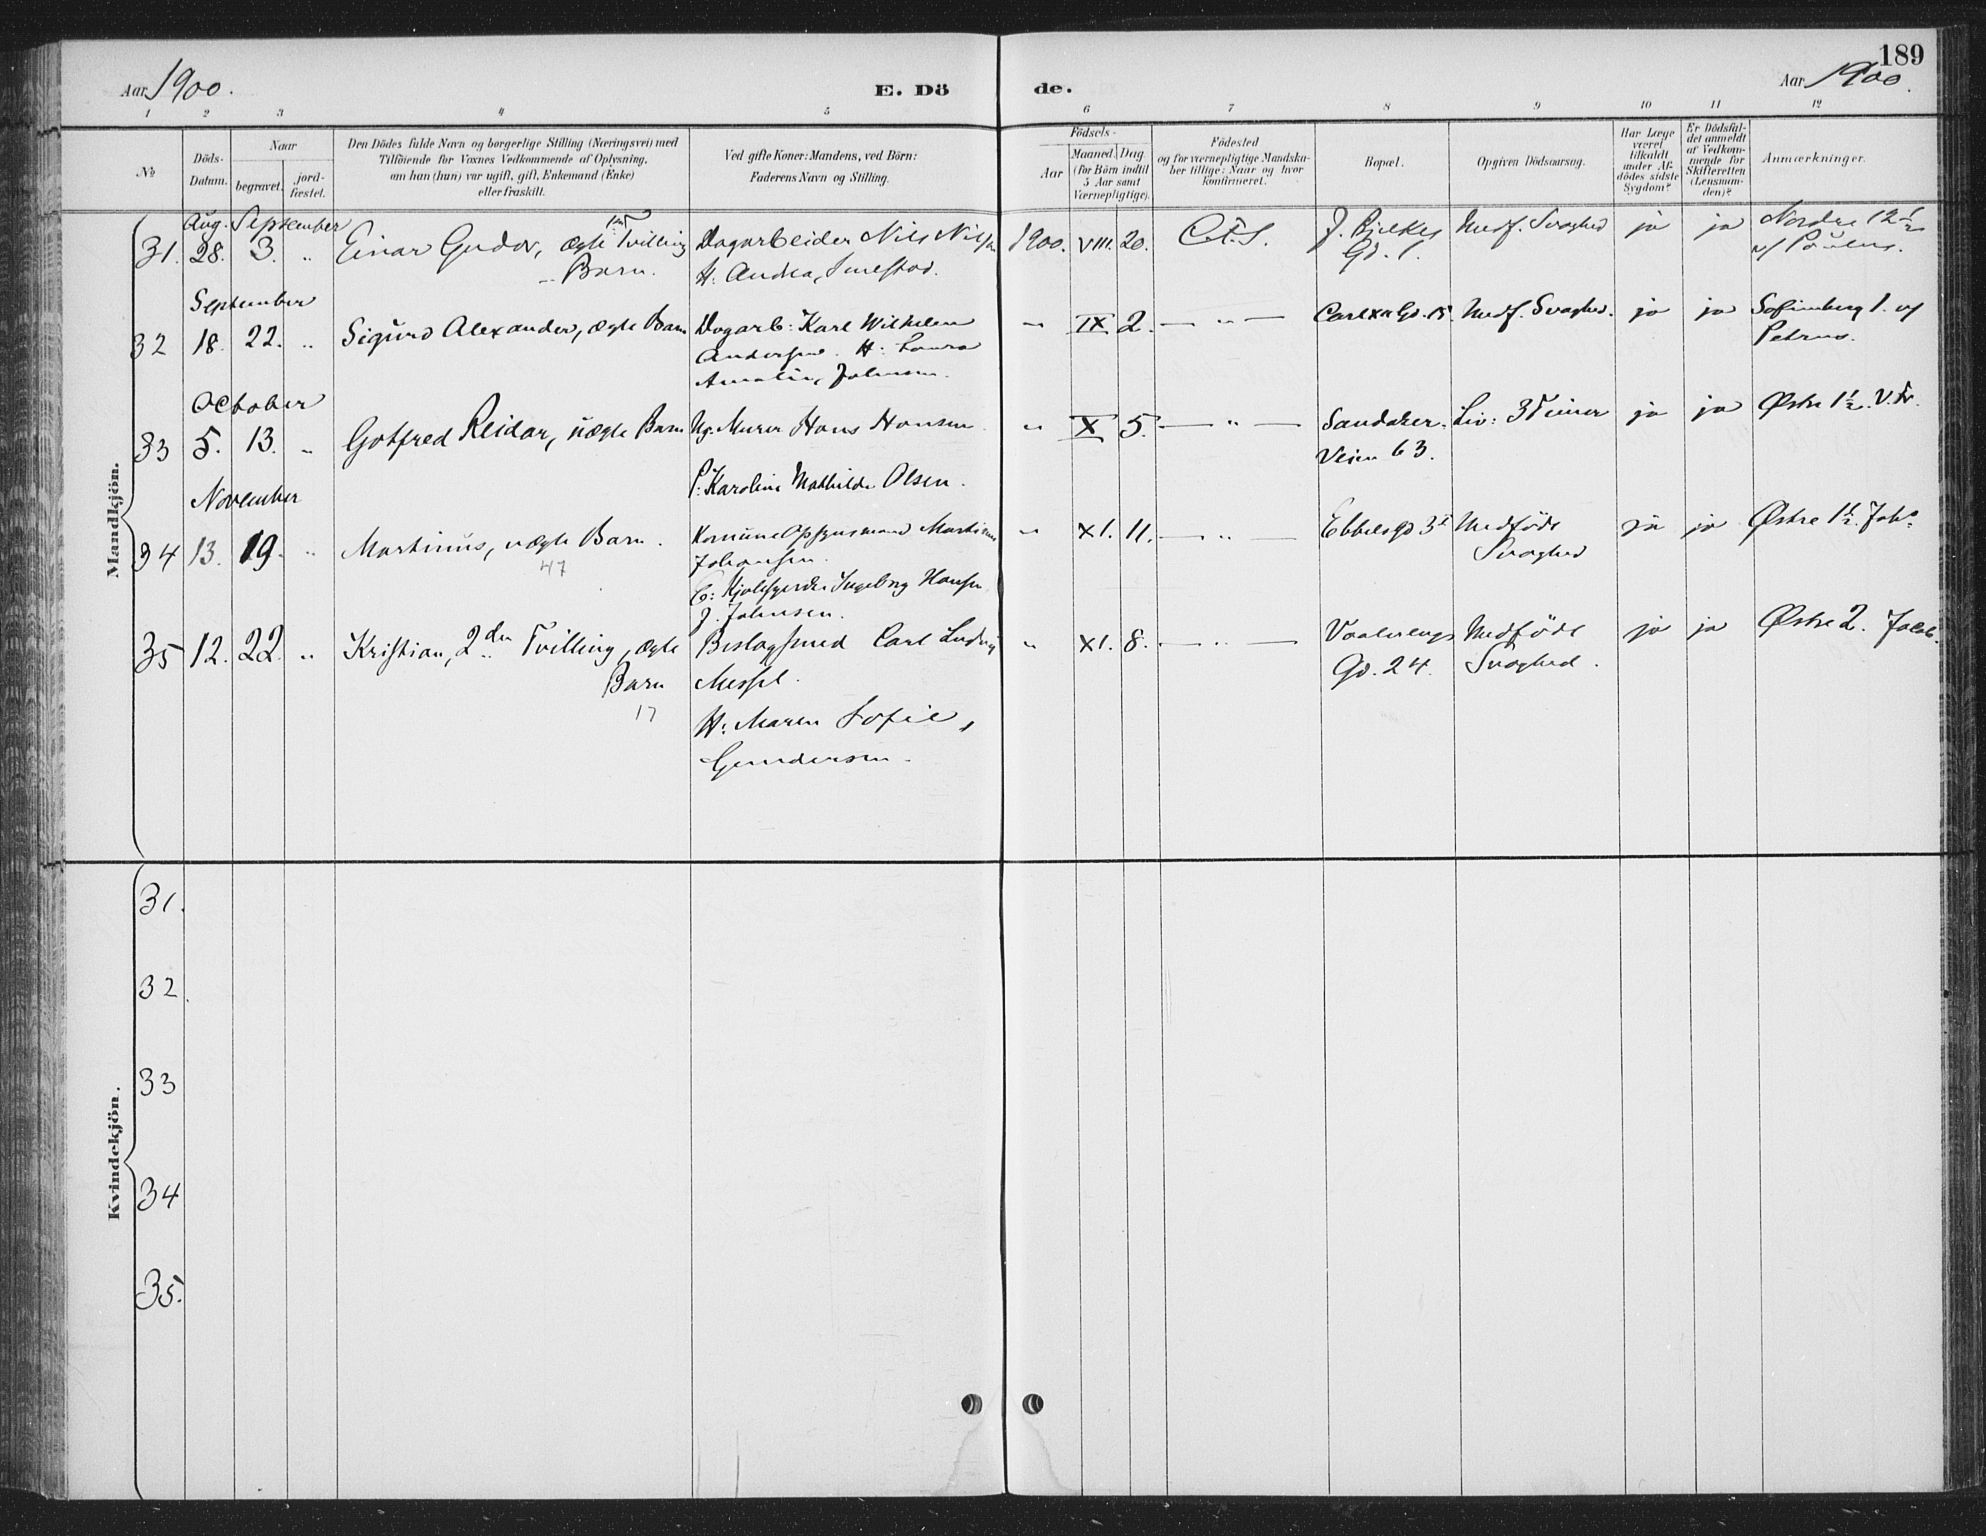 189
Aar 1900.
E. Dö
de.
Aar 1900.
1 2 3 4 5 6 7 8 9 10 11 12
No
Döds-
Datum.
Naar
begravet.
jord-
fæstet.
Den Dödes fulde Navn og borgerlige Stilling (Næringsvei) med
Tilföiende for Voxnes Vedkommende af Oplysning,
om han (hun) var ugift, gift, Enkemand (Enke)
eller fraskilt.
Ved gifte Koner: Mandens, ved Börn:
Faderens Navn og Stilling.
Födsels-
Aar
Maaned. Dag.
(for Börn indtil
5 Aar samt
Værnepligtige).
Födested
og for værnepligtige Mandska-
ber tillige: Naar og hvor
konfirmeret.
Bopæl.
Opgiven Dödsaarsag.
Har Læge
været
tilkaldt
under Af-
dödes sidste
Sygdom?
Er Dödsfal-
det anmeldt
af Vedkom-
mende for
Skifteretten
(Lensman-
den)?
Anmærkninger.
Mandkjön.
Aug. September
31. 28. 3. " Einar Gudov, ægte 1st Tvilling Dagarbeider Nils Nilsen 1900. VIII. 20. J. Bjelkes Medf. Svaghed ja ja Nordre 12
Barn. H: Andrea, Gd. 1.
September
32 18. 22. " Sigurd Alexander, ægte Barn Dagarb: Karl Wilhelm " IX 2. — " — Carl XII Gd. 15. Medf. Svaghed. ja ja Sofienberg 1. v/
Andersen. H: Laura Petrus.
Amalie, Johnsen.
October
33 5. 13. " Gotfred Reidar, uægte Barn Ug. Murer Hans Hansen " X 5. — " — Sandaker- Liv: 3 Timer ja ja Østre 1½. V. Fr.
Veien 63.
P: Karoline Mathilde Olsen.
November
34 13. 19. " Martinus, uægte Barn. Martinus " XI. 11. — " — Ebbels gd 3 Medföde ja ja Østre 1½. Joh.
47 Johansen. Svaghed
Ingeborg Hansen
J. Johnsen.
35 12. 22. " Kristian, 2den Tvilling, ægte Beslagsmed Carl Ludvig " XI. 8. — " — Vaalerengs Medföde ja ja Østre 2. Jakob.
Barn Messel. Gd. 24. Svaghed.
17
H: Maren Sofie,
Gundersen.
Kvindekjön.
31.
32
33
34
35.